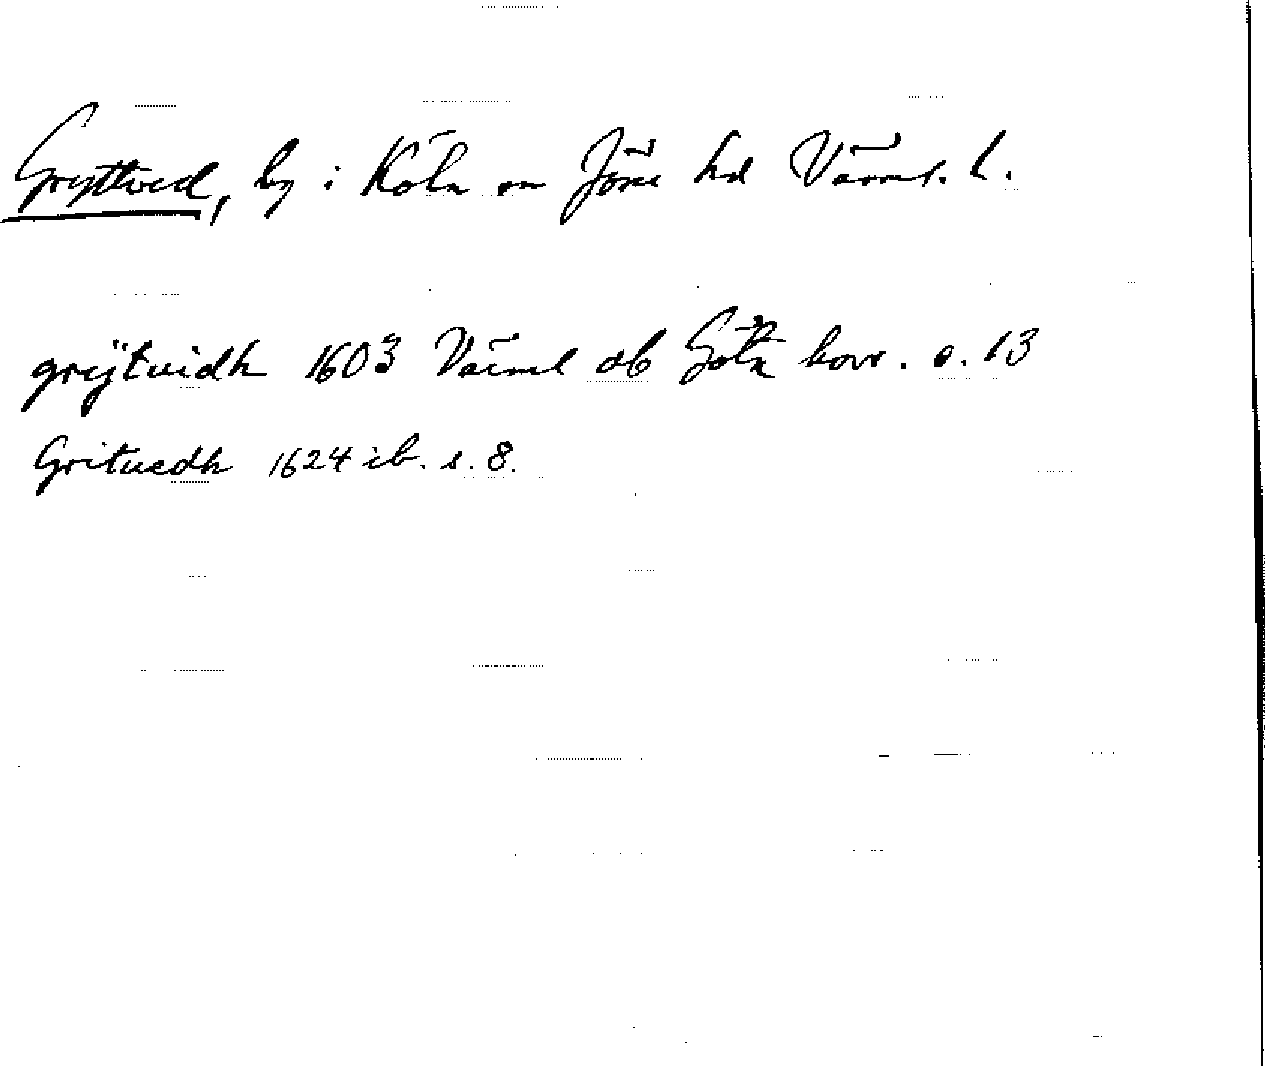 Gryttved, by i Köla sn Jösse hd Värml. l.
grÿtuidh 1603 Värml db Göta hovr. s. 13
Grituedh 1624 ib. s. 8.